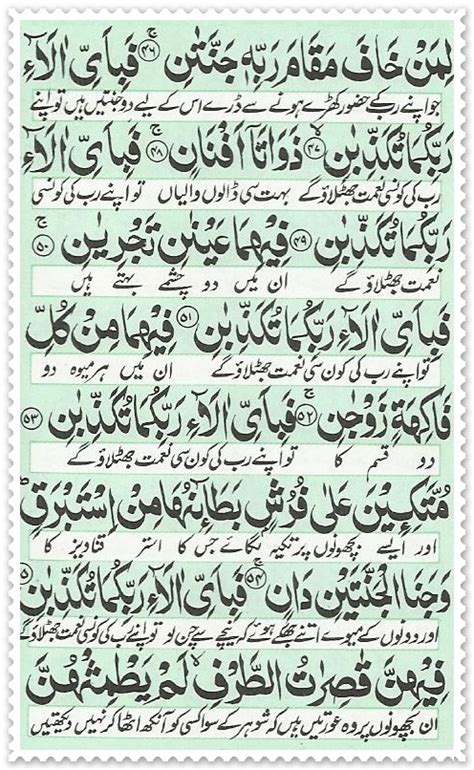 لِمَنْ خَافَ مَقَامَ رَبِّهٖ جَنَّتٰنِ ۚ﴿۴۶﴾ فَبِاَیِّ اٰلَآءِ
جو اپنے رب کے حضور کھڑے ہونے سے ڈرے اس کے لیے دو جنتیں ہیں تو اپنے
رَبِّكُمَا تُكَذِّبٰنِ ۙ﴿۴۷﴾ ذَوَاتَاۤ اَفْنَانٍ ۚ﴿۴۸﴾ فَبِاَیِّ اٰلَآءِ
رب کی کونسی نعمت جھٹلاؤ گے بہت سی ڈالوں والیاں تو اپنے رب کی کونسی
رَبِّكُمَا تُكَذِّبٰنِ ﴿۴۹﴾ فِیْهِمَا عَیْنٰنِ تَجْرِیٰنِ ۚ﴿۵۰﴾
نعمت جھٹلاؤ گے ان میں دو چشمے بہتے ہیں
فَبِاَیِّ اٰلَآءِ رَبِّكُمَا تُكَذِّبٰنِ ﴿۵۱﴾ فِیْهِمَا مِنْ كُلِّ
تو اپنے رب کی کون سی نعمت جھٹلاؤ گے ان میں ہر میوہ دو
فَاكِهَةٍ زَوْجٰنِ ۚ﴿۵۲﴾ فَبِاَیِّ اٰلَآءِ رَبِّكُمَا تُكَذِّبٰنِ ﴿۵۳﴾
دو قسم کا تو اپنے رب کی کون سی نعمت جھٹلاؤ گے
مُتَّكِـِٕیْنَ عَلٰی فُرُشٍۭ بَطَآىِٕنُهَا مِنْ اِسْتَبْرَقٍ ؕ
اور ایسے بچھونوں پر تکیہ لگائے جس کا استر قناویز کا
وَجَنَا الْجَنَّتَیْنِ دَانٍ ۚ﴿۵۴﴾ فَبِاَیِّ اٰلَآءِ رَبِّكُمَا تُكَذِّبٰنِ
اور دونوں کے میوے اتنے جھکے ہوئے کہ نیچے سے چن لو تو اپنے رب کی کونسی نعمت جھٹلاؤ گے
فِیْهِنَّ قٰصِرٰتُ الطَّرْفِ ۙ لَمْ یَطْمِثْهُنَّ
ان بچھونوں پر وہ عورتیں ہیں کہ شوہر کے سوا کسی کو آنکھ اٹھا کر نہیں دیکھتیں